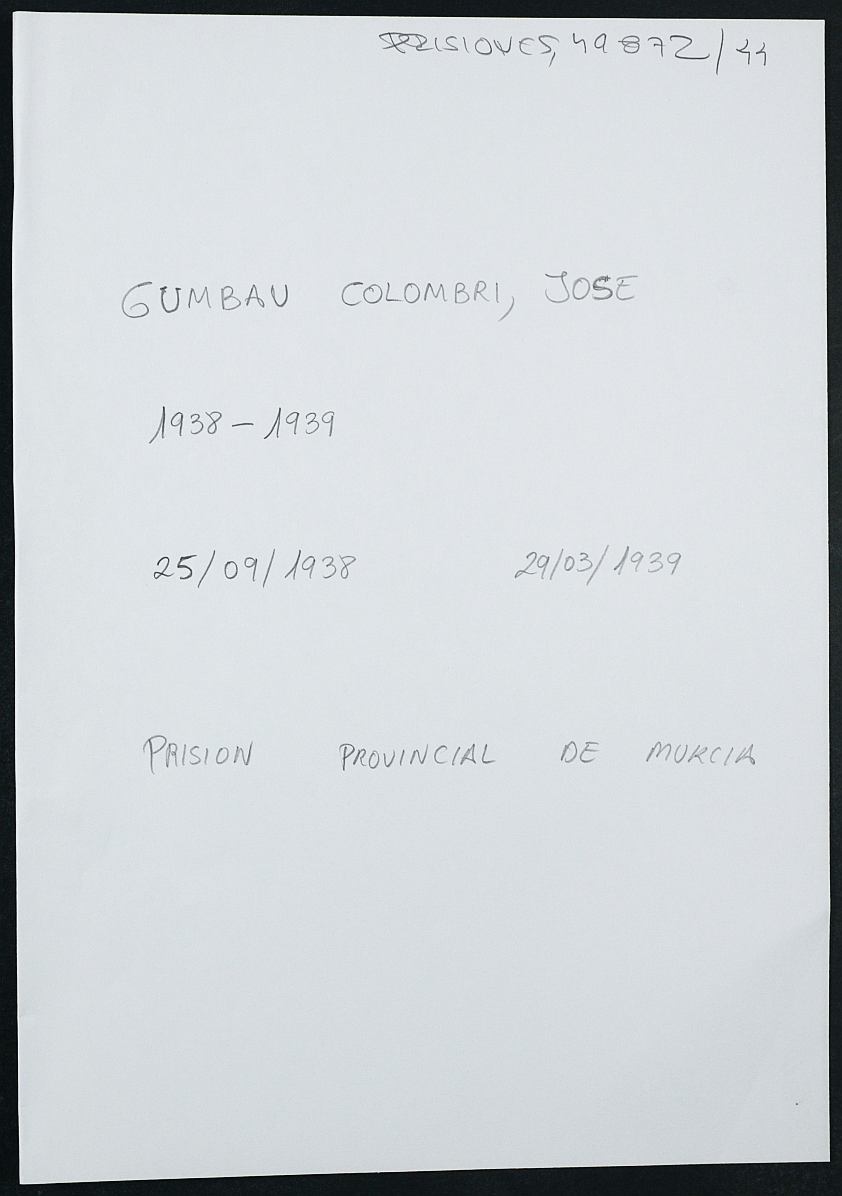 PRISIONES, 49872/44
GUMBAU COLOMBRI, JOSE
1938 - 1939
25/09/1938 29/03/1939
PRISION PROVINCIAL DE MURCIA